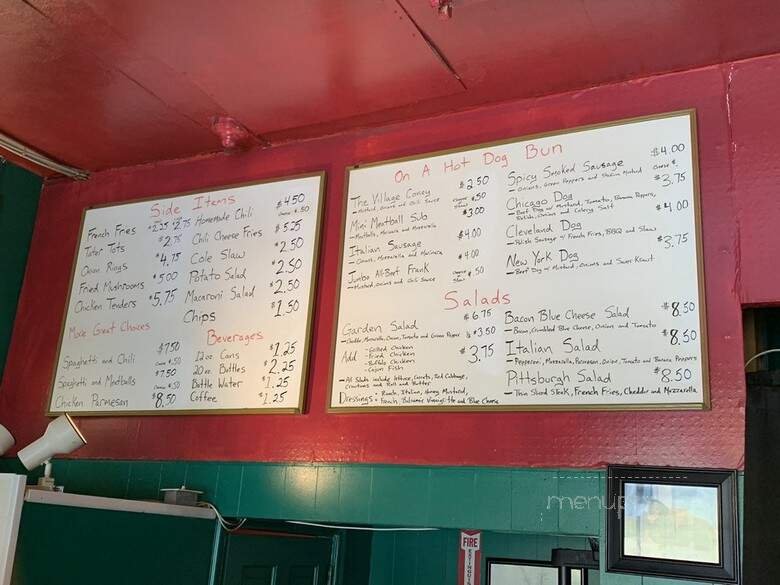 Side Items
French Fries $2.25 $2.75
Tater Tots $2.75
Onion Rings $4.75
Fried Mushrooms $5.00
Chicken Tenders $5.75
Homemade Chili $4.50
Cheese $.50
Chili Cheese Fries $5.25
Cole Slaw $2.50
Potato Salad $2.50
Macaroni Salad $2.50
Chips $1.50
More Great Choices
Spaghetti and Chili $7.50
Cheese $.50
Spaghetti and Meatballs $7.50
Cheese $.50
Chicken Parmesan $8.50
Beverages
12 oz Cans $1.25
20 oz. Bottles $2.25
Bottle Water $1.25
Coffee $1.25
On A Hot Dog Bun
The Village Coney $2.50
- Mustard, Onions and Chili Sauce
Cheese $.50
Mini Meatball Sub $3.00
- Meatballs, Marinara and Mozzarella
Italian Sausage $4.00
- Onions, Mozzarella and Marinara
Jumbo All-Beef Frank $4.00
- Mustard, Onions and Chili Sauce
Cheese $.50
Spicy Smoked Sausage $4.00
- Onions, Green Peppers and Mustard
Chicago Dog $3.75
- Beef Dog w/ Mustard, Tomato, Banana Peppers,
Relish, Onions and Celery Salt
Cleveland Dog $4.00
- Polish Sausage w/ French Fries, BBQ and Slaw
New York Dog $3.75
- Beef Dog w/ Mustard, Onions and Sauer Kraut
Salads
Garden Salad $6.75
- Cheddar, Mozzarella, Onion, Tomato and Green Pepper
Add - Grilled Chicken $3.50
- Fried Chicken
- Buffalo Chicken
- Cajun Fish $3.75
- All Salads include lettuce, Carrots, Red Cabbage,
Croutons and Roll and Butter
Dressings: Ranch, Italian, Honey Mustard,
French, Balsamic Vinaigrette and Blue Cheese
Bacon Blue Cheese Salad $8.50
- Bacon, Crumbled Blue Cheese, Onions and Tomato
Italian Salad $8.50
- Pepperoni, Mozzarella, Parmesan, Onion, Tomato and Banana Peppers
Pittsburgh Salad $8.50
- Thin Sliced Steak, French Fries, Cheddar and Mozzarella
FIRE
EXTINGUIS
menup